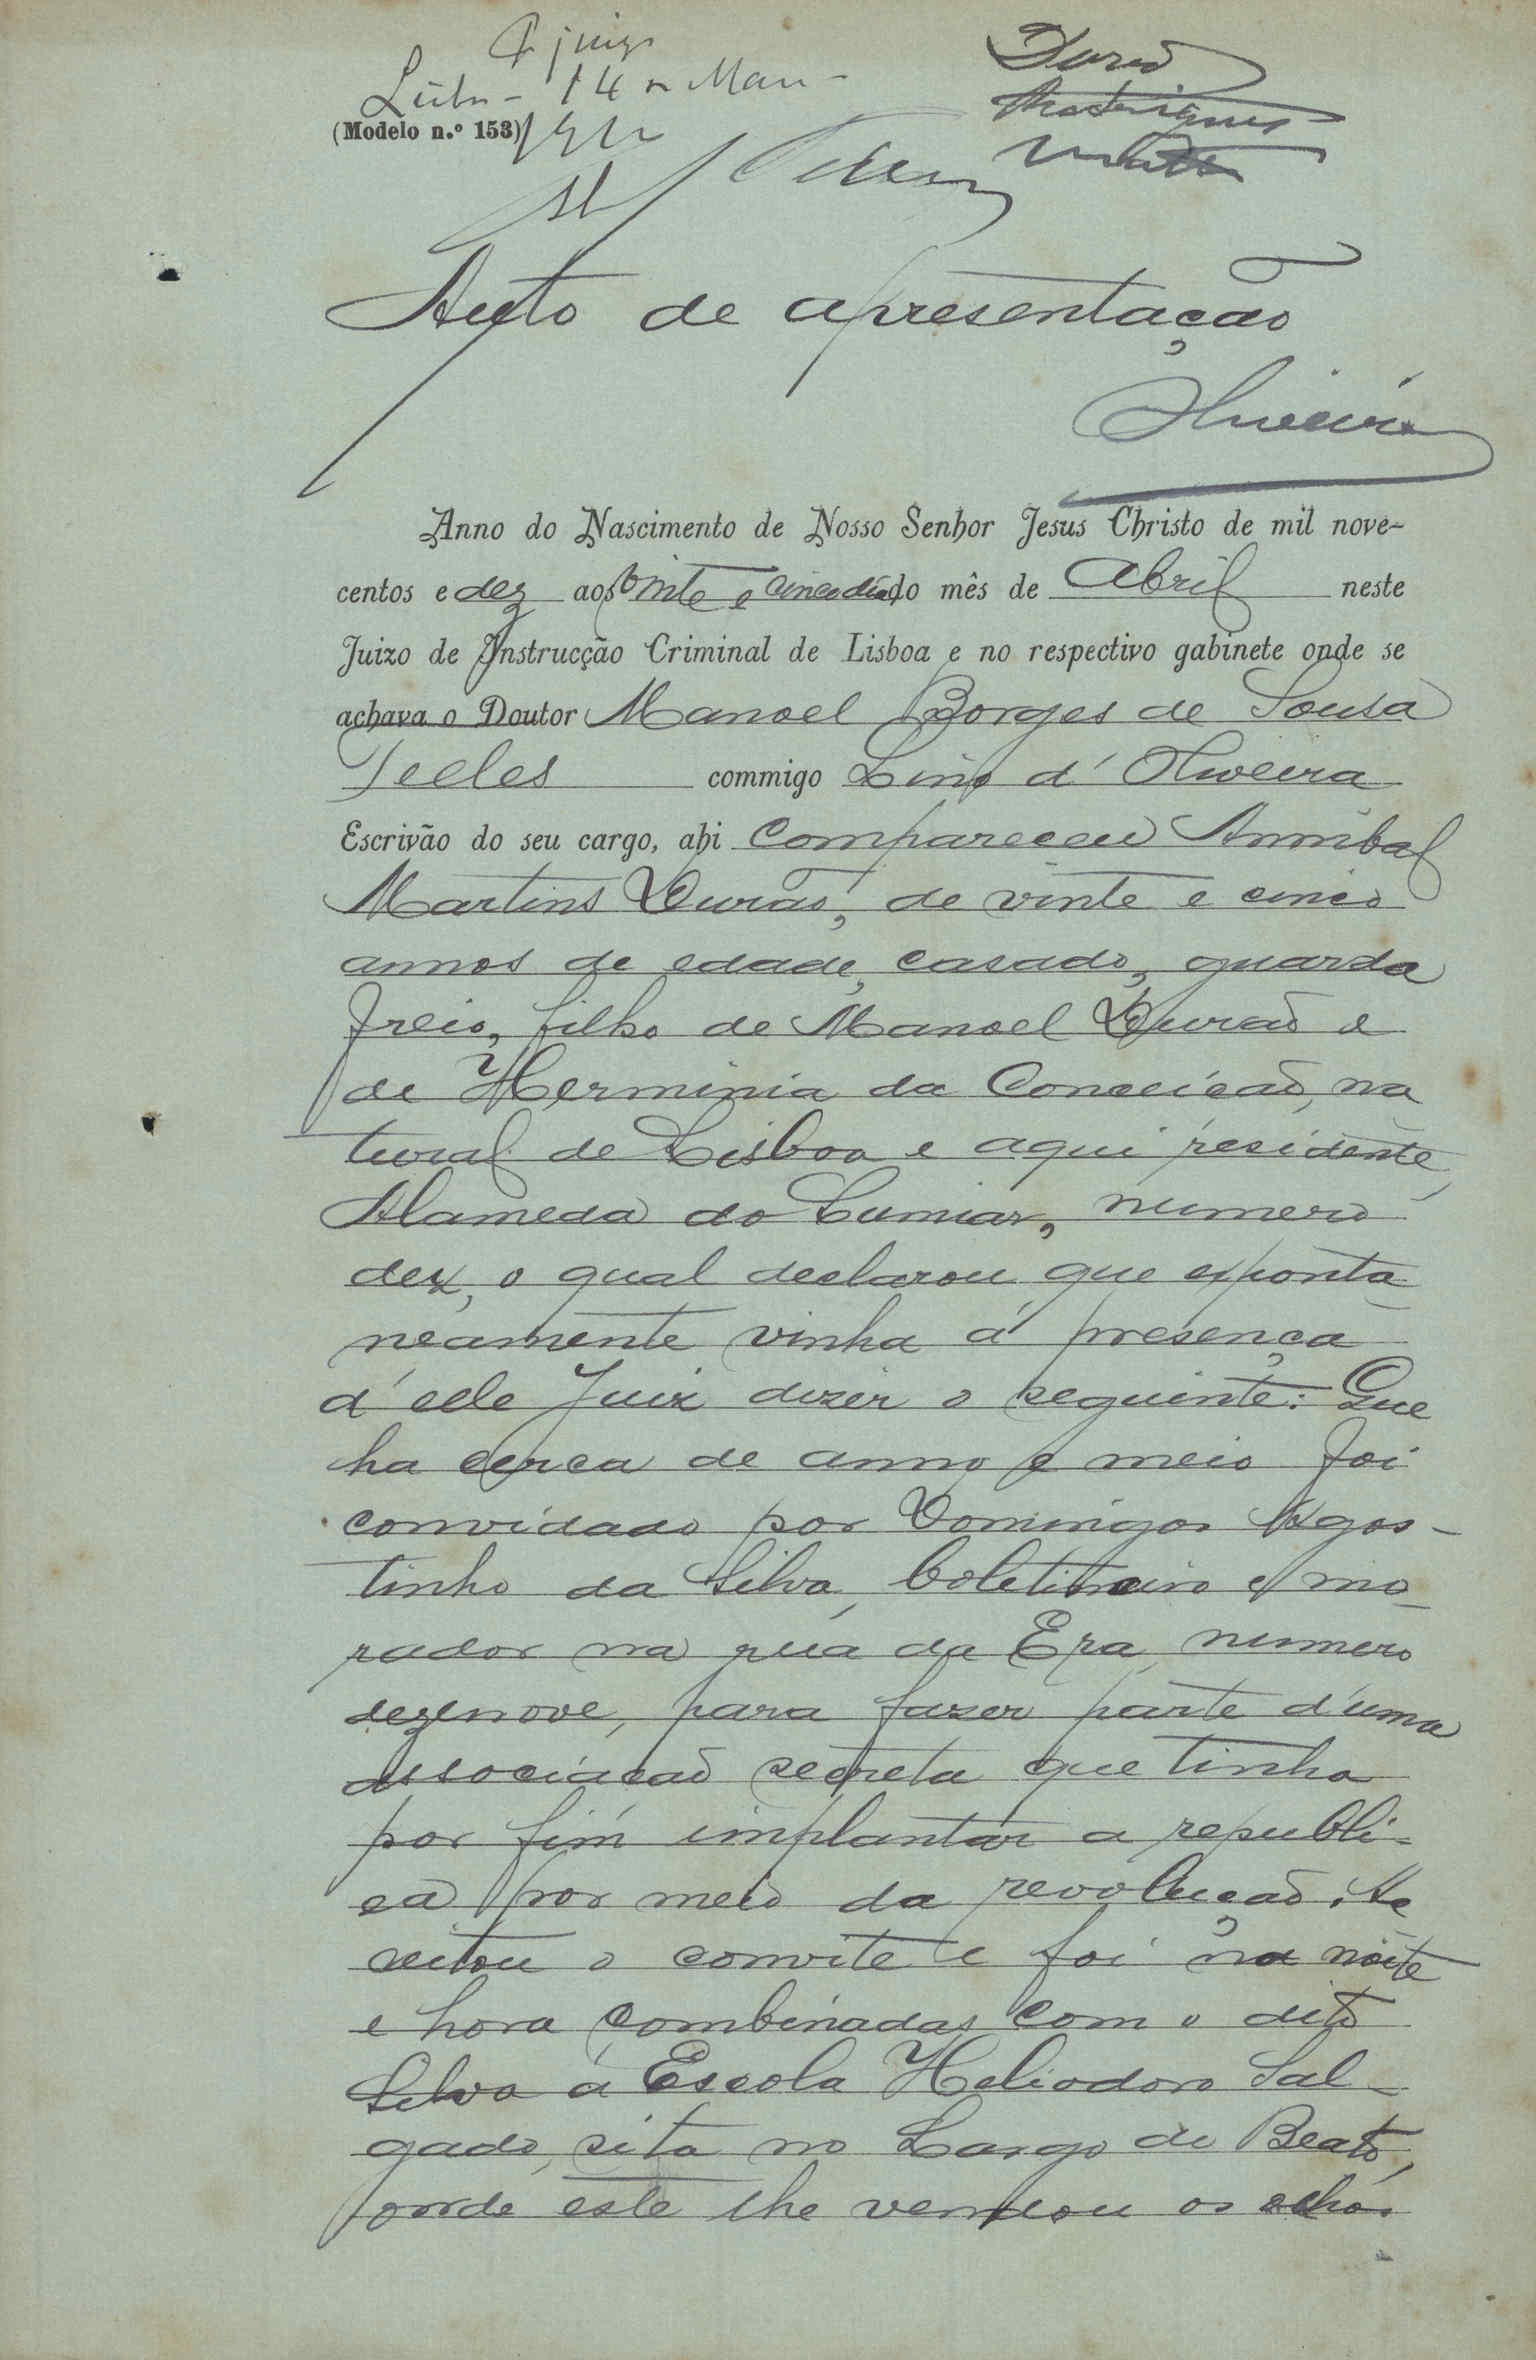 14 Mar
(Modelo n.º 153)
Auto de apresentação
Oliveira
Anno do Nascimento de Nosso Senhor Jesus Christo de mil nove-
centos e dez aos vinte e cinco dias do mês de Abril neste
Juizo de Instrucção Criminal de Lisboa e no respectivo gabinete onde se
achava o Doutor Manoel Borges de Sousa
Telles commigo Lino d'Oliveira
Escrivão do seu cargo, ahi compareceu Annibal
Martins Durão, de vinte e cinco
annos de edade, casado, guarda
freio, filho de Manoel Durão e
de Herminia da Conceição, na
tural de Lisboa e aqui residente,
Alameda do Lumiar, numero
dez, o qual declarou que exponta
neamente vinha á presença
d'elle Juiz dizer o seguinte: Que
ha cerca de anno e meio foi
convidado por Domingos Agos-
tinho da Silva, boletineiro e mo-
rador na rua da Era, numero
dezenove, para fazer parte d'uma
associação secreta que tinha
por fim implantar a republi-
ca por meio da revolução. Ac
ceitou o convite e foi na noite
e hora combinadas com o dito
Silva á Escola Heliodoro Sal-
gado, sita no Largo do Beato,
onde este lhe vendou os olhos